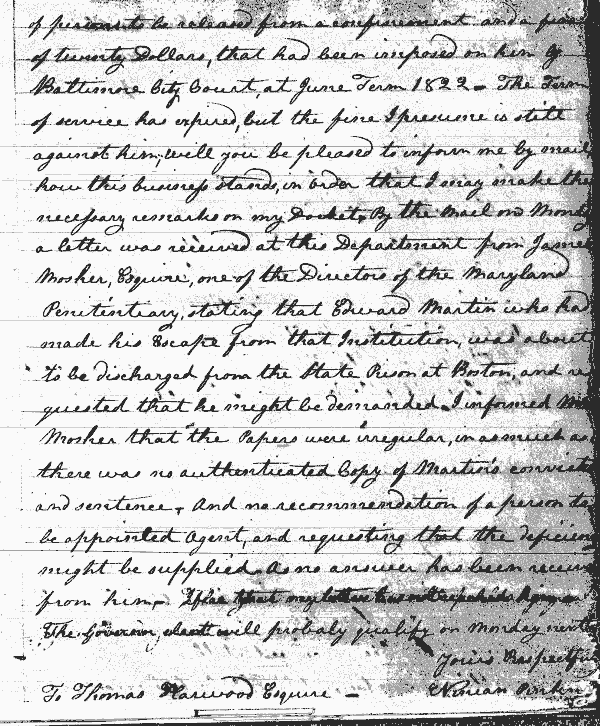 of persons to be released from a confinement and a fine
of twenty Dollars, that had been imposed on him by
Baltimore City Court, at June Term 1822 – The Term
of service has expired, but the fine I presume is still
against him; will you be pleased to inform me by mail,
how this business stands, in order that I may make the
necessary remarks on my Docket, By the Mail on Mond
a letter was received at this Department from James
Mosher, Esquire, one of the Directors of the Maryland
Penitentiary, stating that Edward Martin who had
made his Escape from that Institution, was about
to be discharged from the State Prison at Boston, and re
quested that he might be demanded. I informed Mr
Mosher that the Papers were irregular, in as much as
there was no authenticated Copy of Martin's convict
and sentence, And no recommendation of a person to
be appointed Agent, and requesting that the deficien
might be supplied. As no answer has been receiv
from him –
The Governor elect will probaly qualify on Monday next
Yours Respectfu
To Thomas Harwood Esquire – Ninian Pinkn